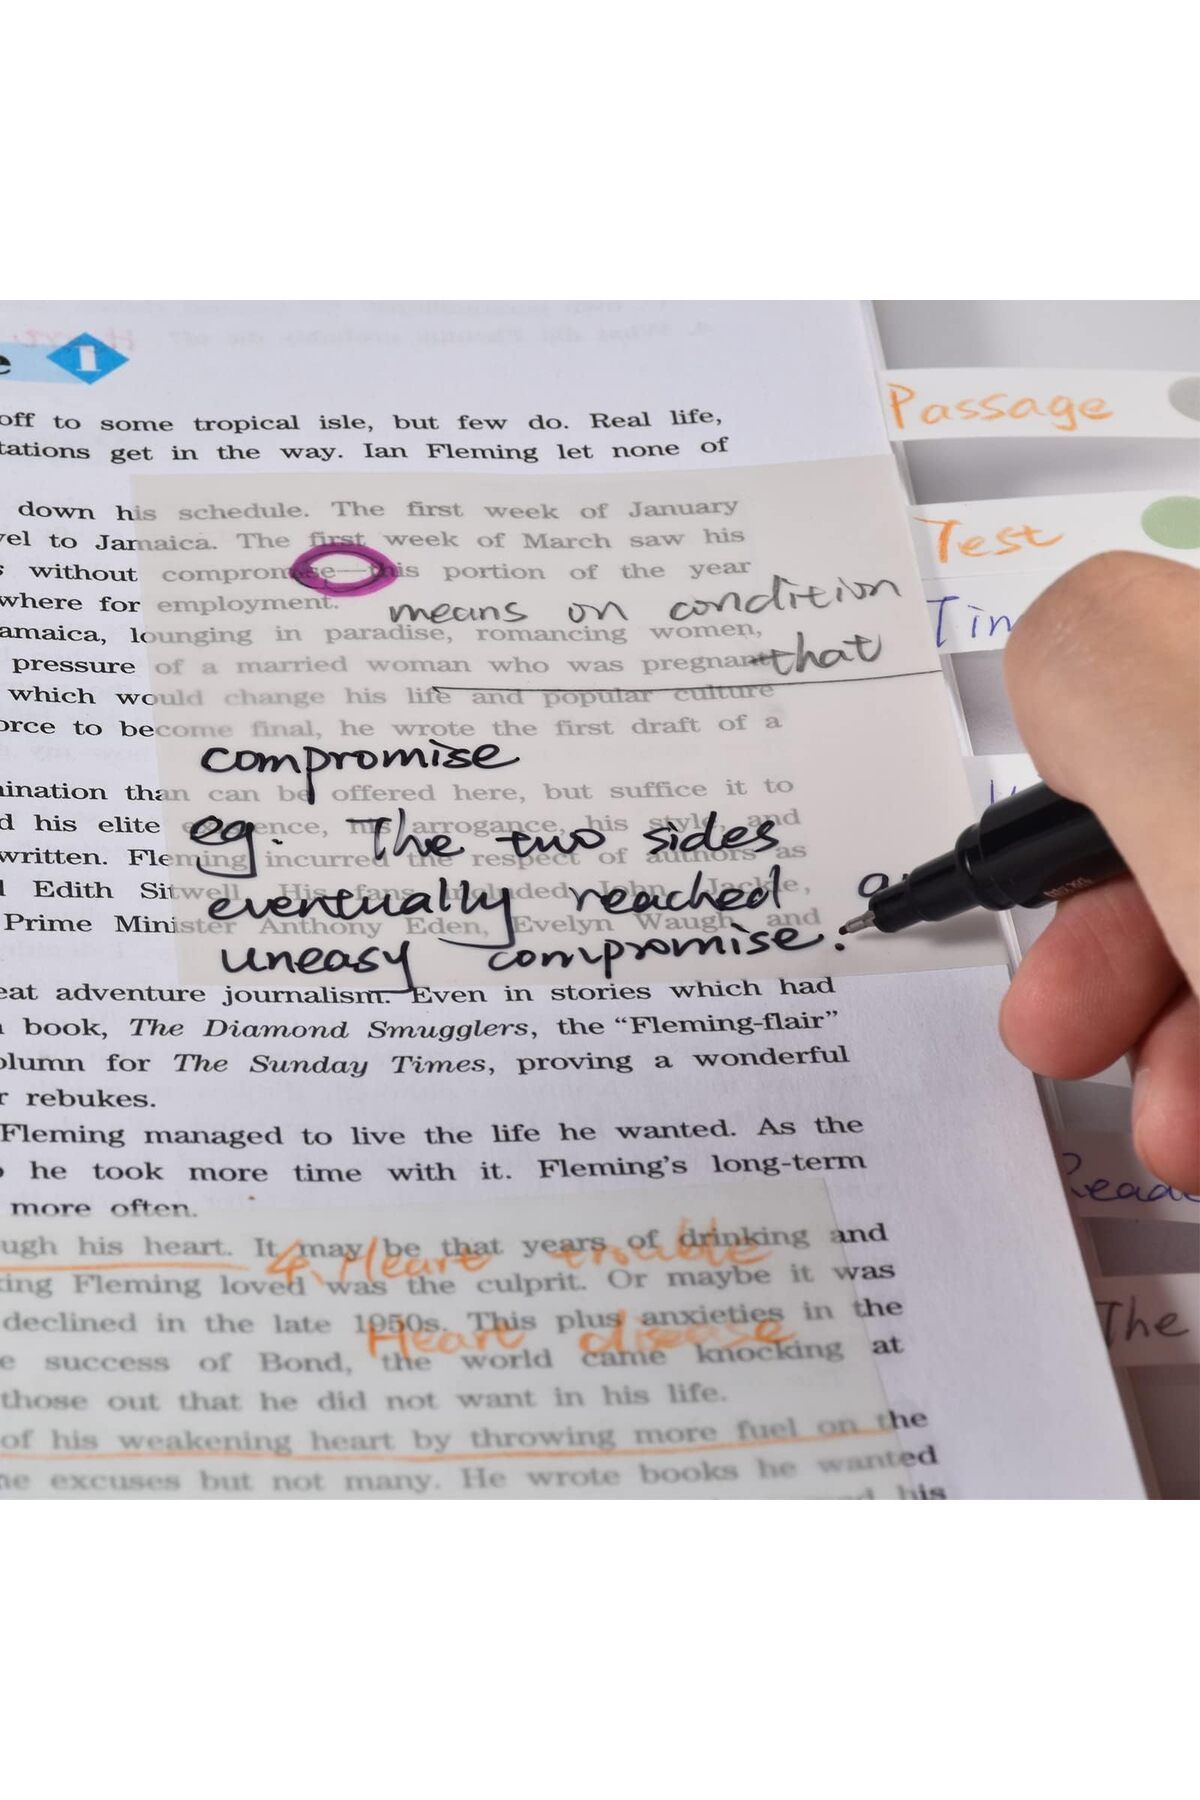 1
off to some tropical isle, but few do. Real life,
get in the way. Ian Fleming let none of
down his schedule. The first week of January
to Jamaica. The first week of March saw his
without compromise—this portion of the year
where for employment.
means on condition
lounging in paradise, romancing women,
pressure of a married woman who was pregnant
that
which would change his life and popular culture
to become final, he wrote the first draft of a
compromise
than can be offered here, but suffice it to
his elite existence, his arrogance, his style, and
eg. The two sides
written. Fleming incurred the respect of authors as
Edith Sitwell. His fans included John, Jackie,
eventually reached
Prime Minister Anthony Eden, Evelyn Waugh, and
uneasy compromise.
adventure journalism. Even in stories which had
book, The Diamond Smugglers, the "Fleming-flair"
for The Sunday Times, proving a wonderful
rebukes.
Fleming managed to live the life he wanted. As the
he took more time with it. Fleming's long-term
more often.
his heart. It may be that years of drinking and
4. Heart trouble
Fleming loved was the culprit. Or maybe it was
declined in the late 1950s. This plus anxieties in the
Heart disease
success of Bond, the world came knocking at
those out that he did not want in his life.
of his weakening heart by throwing more fuel on the
excuses but not many. He wrote books he wanted
his
Passage
Test
The